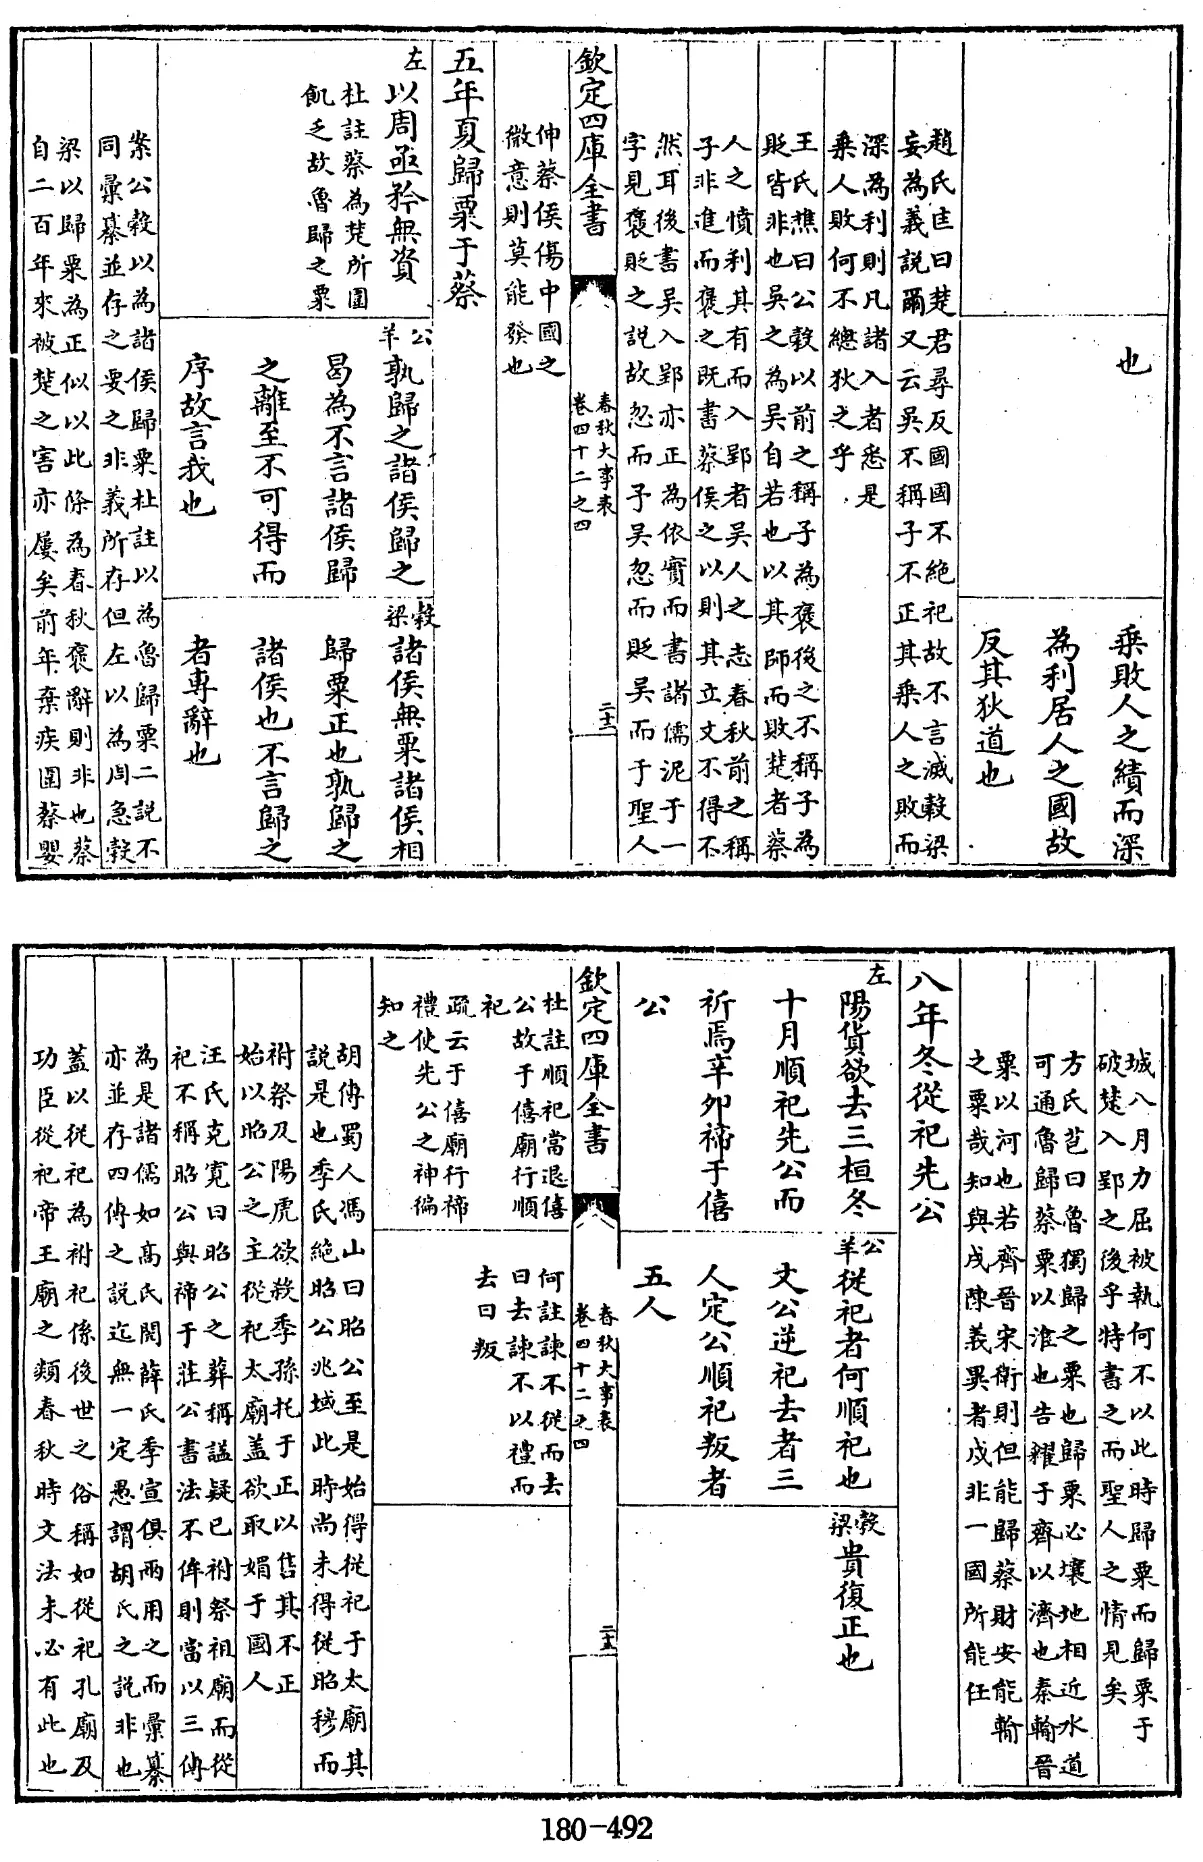 也
乘敗人之績而深
為利居人之國故
反其狄道也
趙氏匡曰楚君尋反國國不絕祀故不言滅穀梁
妄為義說爾又云吳不稱子不正其乘人之敗而
深為利則凡諸入者悉是
乘人敗何不總狄之乎
王氏樵曰公穀以前之稱子為褒後之不稱子為
貶皆非也吳之為吳自若也以其師而敗楚者蔡
人之憤利其有而入郢者吳人之志春秋前之稱
子非進而褒之既書蔡侯之以則其立文不得不
然耳後書吳入郢亦正為依實而書諸儒泥于一
字見褒貶之說故忽而予吳忽而貶吳而于聖人
欽定四庫全書
春秋大事表
卷四十二之四
二十三
伸蔡侯傷中國之
微意則莫能發也
五年夏歸粟于蔡
左
以周亟矜無資
杜註蔡為楚所圍
飢乏故魯歸之粟
公羊
孰歸之諸侯歸之
曷為不言諸侯歸
之離至不可得而
序故言我也
穀梁
諸侯無粟諸侯相
歸粟正也孰歸之
諸侯也不言歸之
者專辭也
案公穀以為諸侯歸粟杜註以為魯歸粟二說不
同彙纂並存之要之非義所存但左以為周急穀
梁以歸粟為正似以此條為春秋褒辭則非也蔡
自二百年來被楚之害亦屢矣前年棄疾圍蔡嬰
城八月力屈被執何不以此時歸粟而歸粟于
破楚入郢之後乎特書之而聖人之情見矣
方氏苞曰魯獨歸之粟也歸粟必壤地相近水道
可通魯歸蔡粟以淮也告糴于齊以濟也秦輸晉
粟以河也若齊晉宋衛則但能歸蔡財安能輸
之粟哉知與戍陳義異者戍非一國所能任
八年冬從祀先公
左
陽貨欲去三桓冬
十月順祀先公而
祈焉辛卯禘于僖
公
公羊
從祀者何順祀也
文公逆祀去者三
人定公順祀叛者
五人
穀梁
貴復正也
欽定四庫全書
春秋大事表
卷四十二之四
二十四
杜註順祀當退僖
公故于僖廟行順
祀
疏云于僖廟行禘
禮使先公之神徧
知之
何註諫不從而去
曰去諫不以禮而
去曰叛
胡傳蜀人馮山曰昭公至是始得從祀于太廟其
說是也季氏絕昭公兆域此時尚未得從昭穆而
祔祭及陽虎欲殺季孫托于正以售其不正
始以昭公之主從祀太廟蓋欲取媚于國人
汪氏克寬曰昭公之葬稱諡疑已祔祭祖廟而從
祀不稱昭公與禘于莊公書法不侔則當以三傳
為是諸儒如高氏閌薛氏季宣俱兩用之而彙纂
亦並存四傳之說迄無一定愚謂胡氏之說非也
蓋以從祀為祔祀係後世之俗稱如從祀孔廟及
功臣從祀帝王廟之類春秋時文法未必有此也
180-492